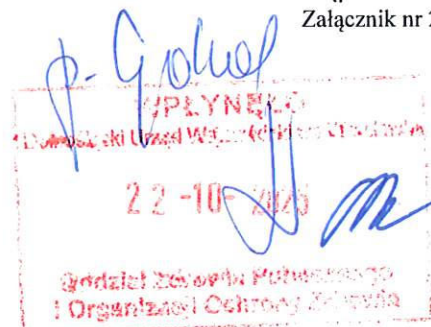 Załącznik nr 2
p.
WPŁYNĘŁO
Dolnośląski Urząd Wojewódzki we Wrocławiu
22 -10-
Oddział Zdrowia Publicznego
i Organizacji Ochrony Zdrowia